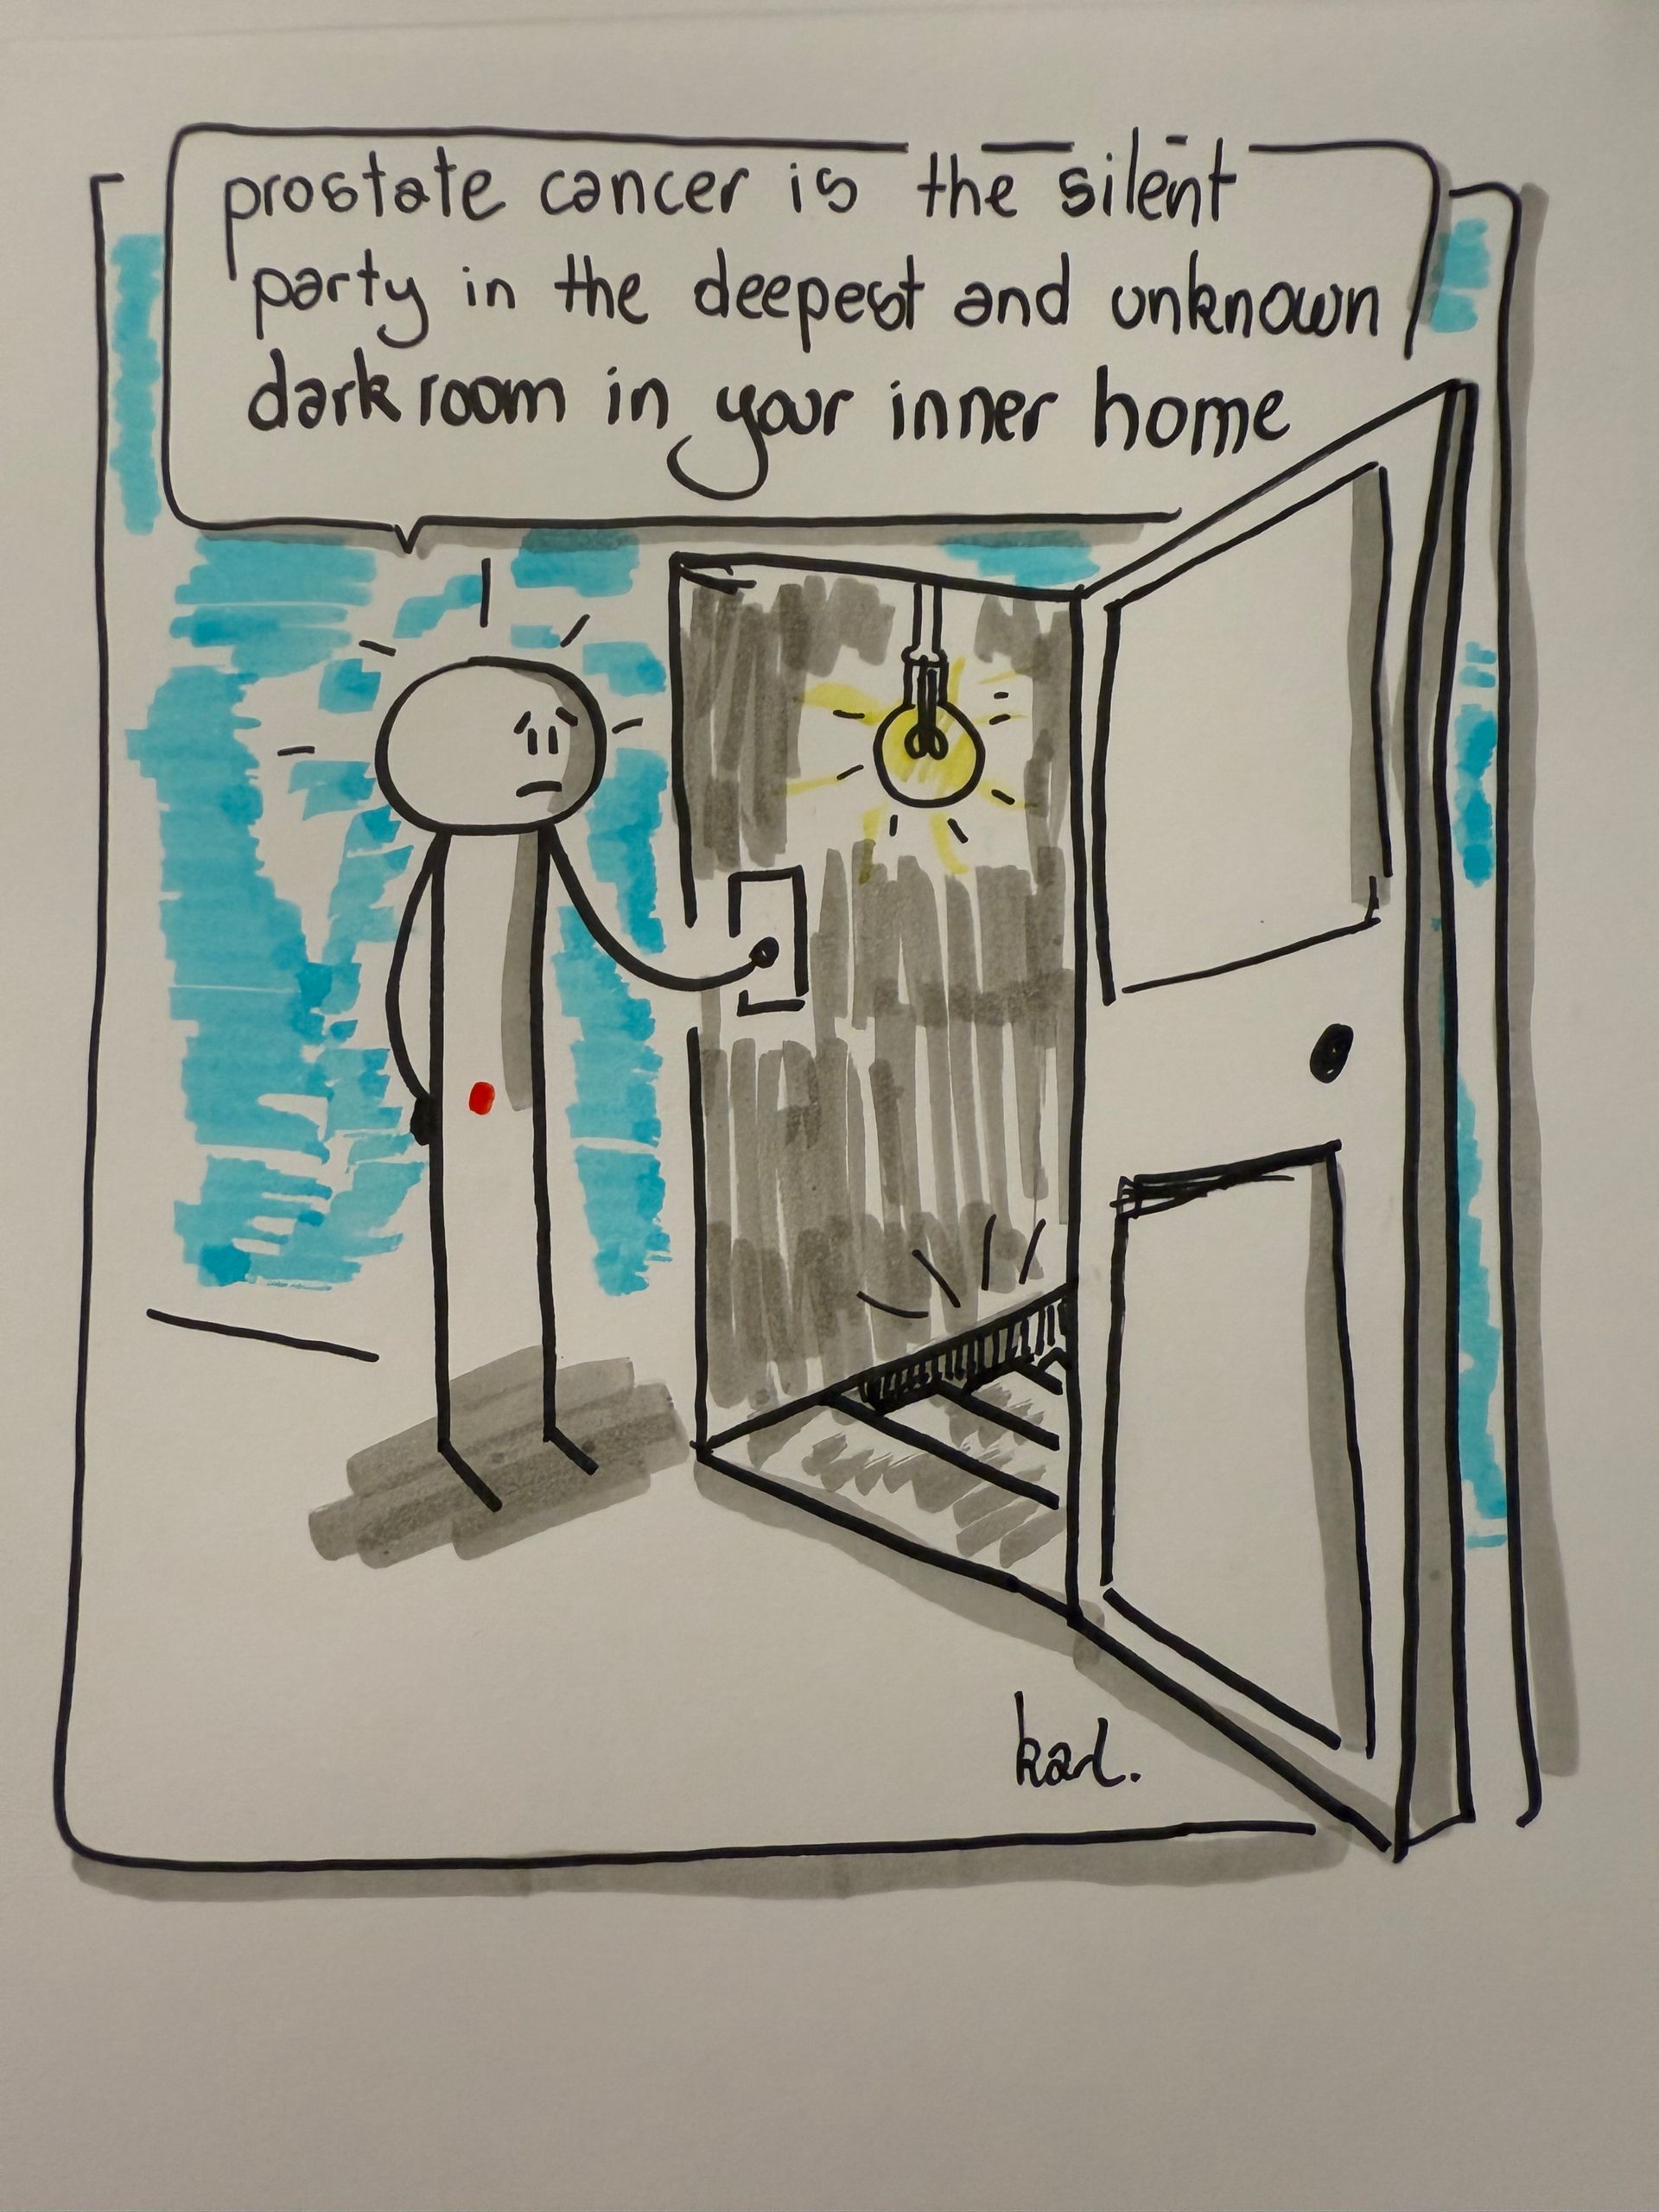 prostate cancer is the silent
party in the deepest and unknown
dark room in your inner home
karl.